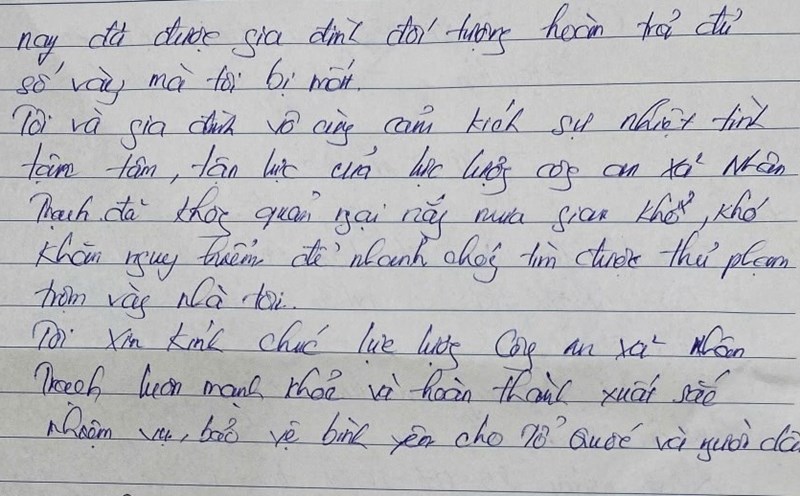 nay đã được gia đình đối tượng hoàn trả đủ
số vàng mà tôi bị mất.
Tôi và gia đình vô cùng cảm kích sự nhiệt tình
tậm tâm, tận lực của lực lượng công an xã Nhân
Thạch đã không quản ngại nắng mưa gian khổ, khó
khăn nguy hiểm để nhanh chóng tìm được thủ phạm
trộm vàng nhà tôi.
Tôi xin kính chúc lực lượng Công an xã Nhân
Thạch luôn mạnh khoẻ và hoàn thành xuất sắc
nhiệm vụ, bảo vệ bình yên cho Tổ Quốc và người dân